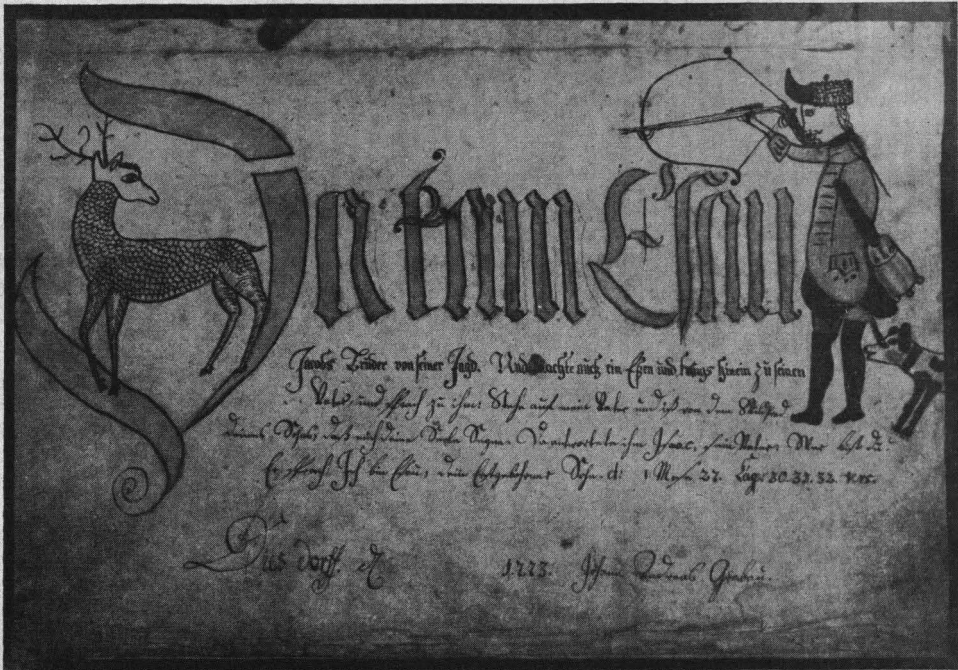 Da kam Esau
Jacobs Bruder von seiner Jagd. Und machte auch ein Eßen und trugs hinein zu seinen
Vater und sprach zu ihm: Stehe auf mein Vater und iß von dem Wildpred
deines Sohns, daß mich deine Seele Segne. Da antwortete ihm Isaac, sein Vater, Wer bist du?
Er sprach Ich bin Esau, dein Sohn. 1 Mose 27. Cap. 30. 31. 32.
dorff. 1773. Johann Andreas